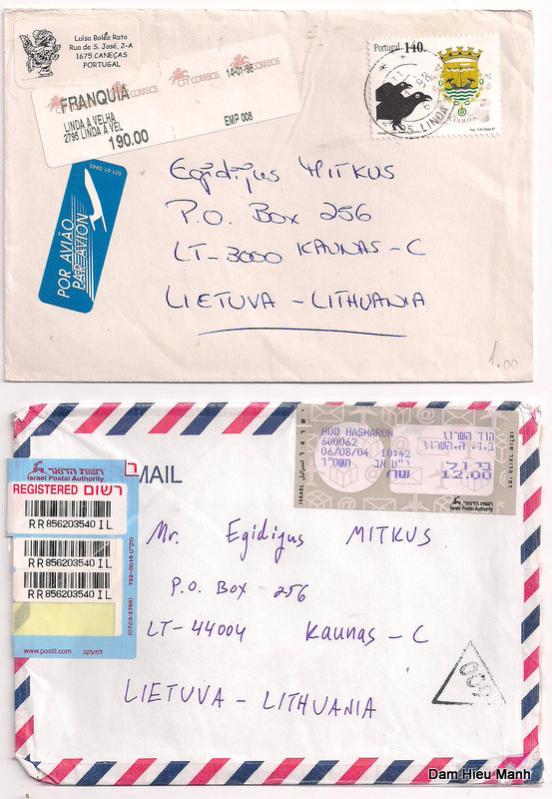 Luísa Boléo Rato
Rua de S. José, 2-A
1675 CANEÇAS
PORTUGAL
CTT CORREIOS
14-01-98
FRANQUIA
LINDA A VELHA
2795 LINDA A VEL
190.00
EMP 006
Portugal 140.
LISBOA
2795 LINDA
POR AVIÃO
PAR AVION
Egidijus MITKUS
P.O. Box 256
LT-3000 KAUNAS-C
LIETUVA - LITHUANIA
1.00
MAIL
HOD HASHARON
600062
06/08/04 10:42
הוד השרון
12.00
ישראל
Israel Postal Authority
רשות הדואר
Israel Postal Authority
REGISTERED רשום
RR 856203540 IL
RR 856203540 IL
RR 856203540 IL
www.postil.com למעקב
Mr. Egidijus MITKUS
P.O. Box 256
LT-44004 Kaunas - C
LIETUVA - LITHUANIA
600
Dam Hieu Manh